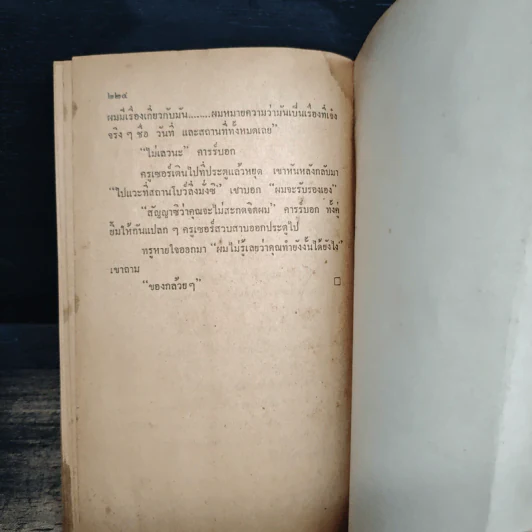 ๒๒๔
ผมมีเรื่องเกี่ยวกับมัน........ผมหมายความว่ามันเป็นเรื่องที่เจ๋ง
จริง ๆ ชื่อ วันที่ และสถานที่ทั้งหมดเลย"
"ไม่เลวนะ" คาร์ร์บอก
ครูเซอร์เดินไปที่ประตูแล้วหยุด เขาหันหลังกลับมา
"ไปแวะที่สถานโบว์ลิ่งมั่งซิ" เขาบอก "ผมจะรับรองเอง"
"สัญญาซิว่าคุณจะไม่สะกดจิตผม" คาร์ร์บอก ทั้งคู่
ยิ้มให้กันแปลก ๆ ครูเซอร์สวบสาบออกประตูไป
ทรูหายใจออกมา "ผมไม่รู้เลยว่าคุณทำยังงั้นได้ยังไง"
เขาถาม
"ของกล้วย ๆ" □